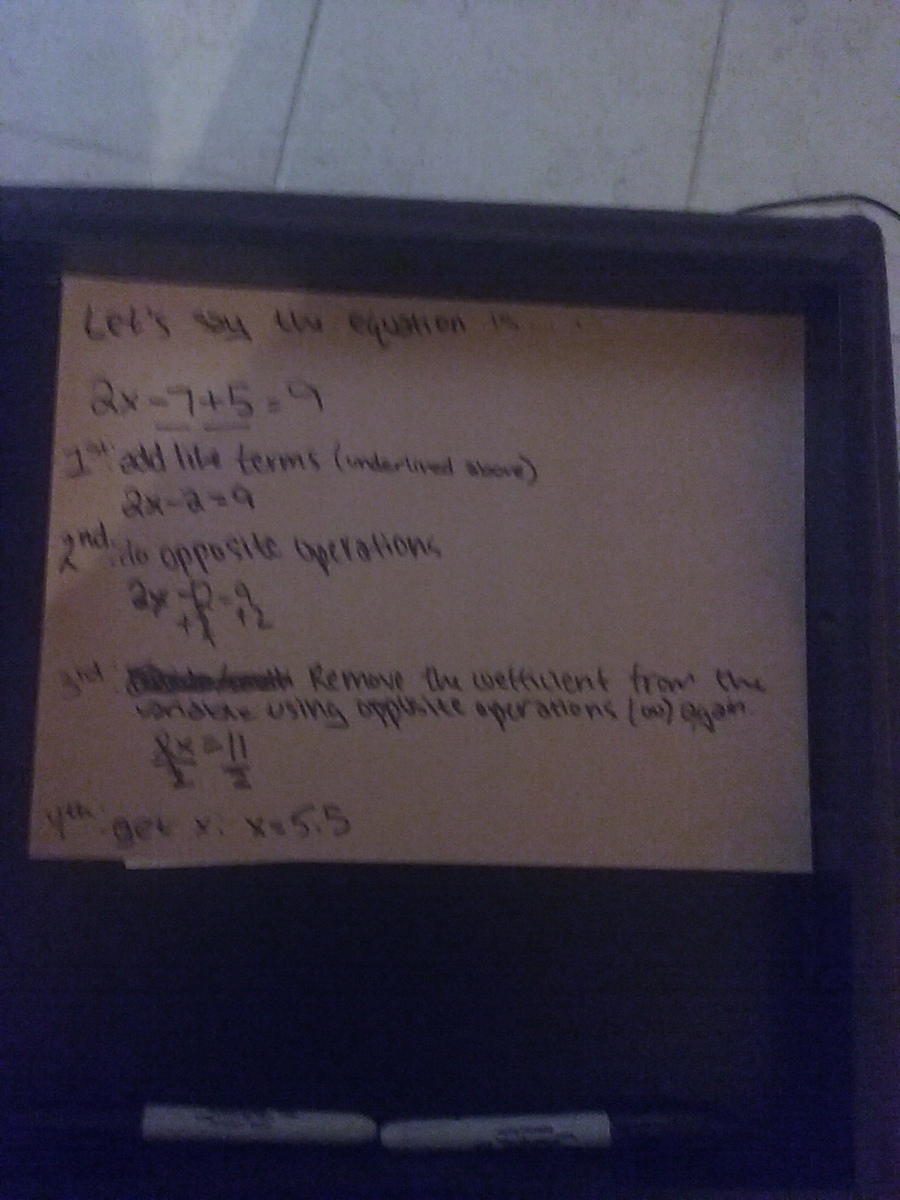 Let's say the equation is....
2x-7+5=9
1st: add like terms (underlined above)
2x-2=9
2nd: do opposite operations
2x-2=9
+2 +2
3rd: Remove the coefficient from the
variable using opposite operations (oo) again.
2x=11
2 2
4th: get x: x=5.5